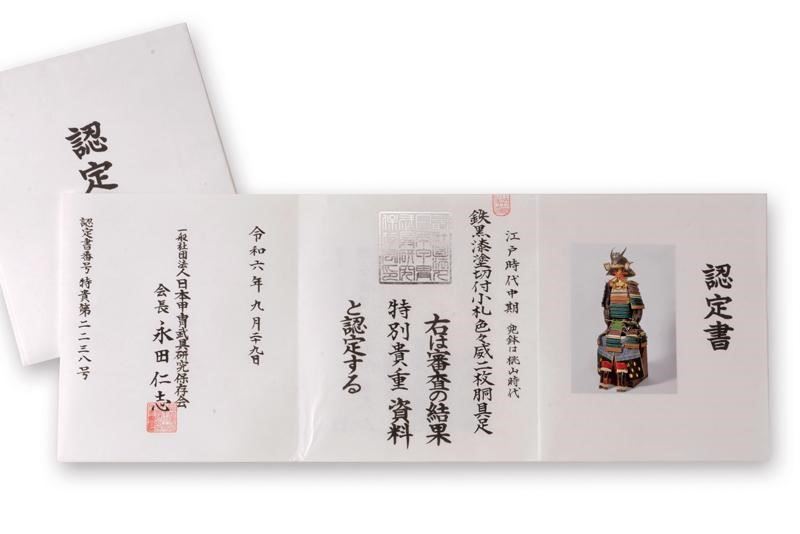 認定
認定書
江戸時代中期 兜鉢は桃山時代
鉄黒漆塗切付小札色々威二枚胴具足
右は審査の結果
特別貴重 資料
と認定する
令和六年 九月二十九日
一般社団法人日本甲冑武具研究保存会
会長 永田仁志
認定書番号 特貴第二二三八号